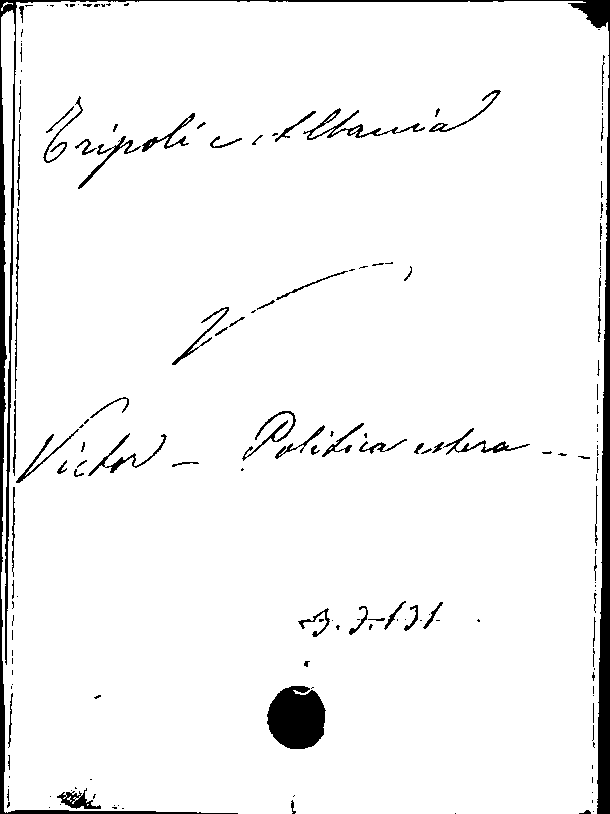 Tripoli e Albania
V
Victor — Politica estera ---
3.J.131